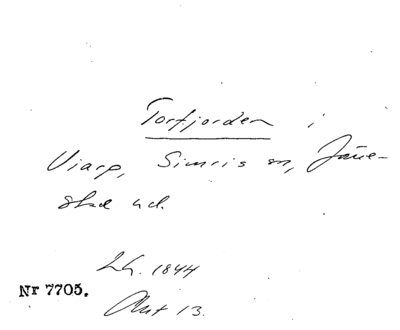 Torfjorden i
Viarp, Simris sn, Järre-
stad hd.
Lh. 1844
Nr 7705.
Akt 13.